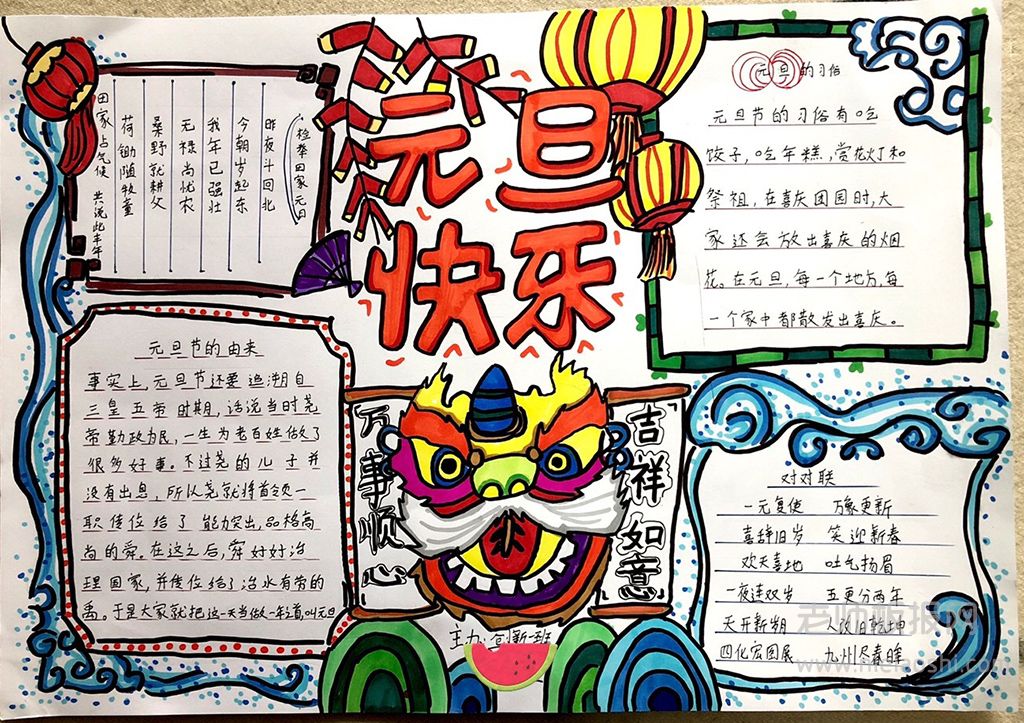 元旦
快乐
(检举田家元日)
昨夜斗回北
今朝岁起东
我年已强壮
无禄尚忧农
桑野就耕父
荷锄随牧童
田家占气候
共说此年年
元旦的习俗
元旦节的习俗有吃
饺子,吃年糕,赏花灯和
祭祖,在喜庆团园时,大
家还会放出喜庆的烟
花。在元旦,每一个地方,每
一个家中都散发出喜庆。
元旦节的由来
事实上,元旦节还要追溯自
三皇五帝时期,话说当时尧
帝勤政为民,一生为老百姓做了
很多好事。不过尧的儿子并
没有出息,所以尧就将首领一
职传位给了能力突出,品格高
尚的舜。在这之后,舜好好治
理国家,并传位给了治水有劳的
禹。于是大家就把这一天当做一年之首,叫元旦
万事顺心
吉祥如意
主力:创新一班
对对联
一元复使 万象更新
喜辞旧岁 笑迎新春
欢天喜地 吐气扬眉
一夜连双岁 五更分两年
天开新朔
四化宏图展 九州尽春晖
老师板报网